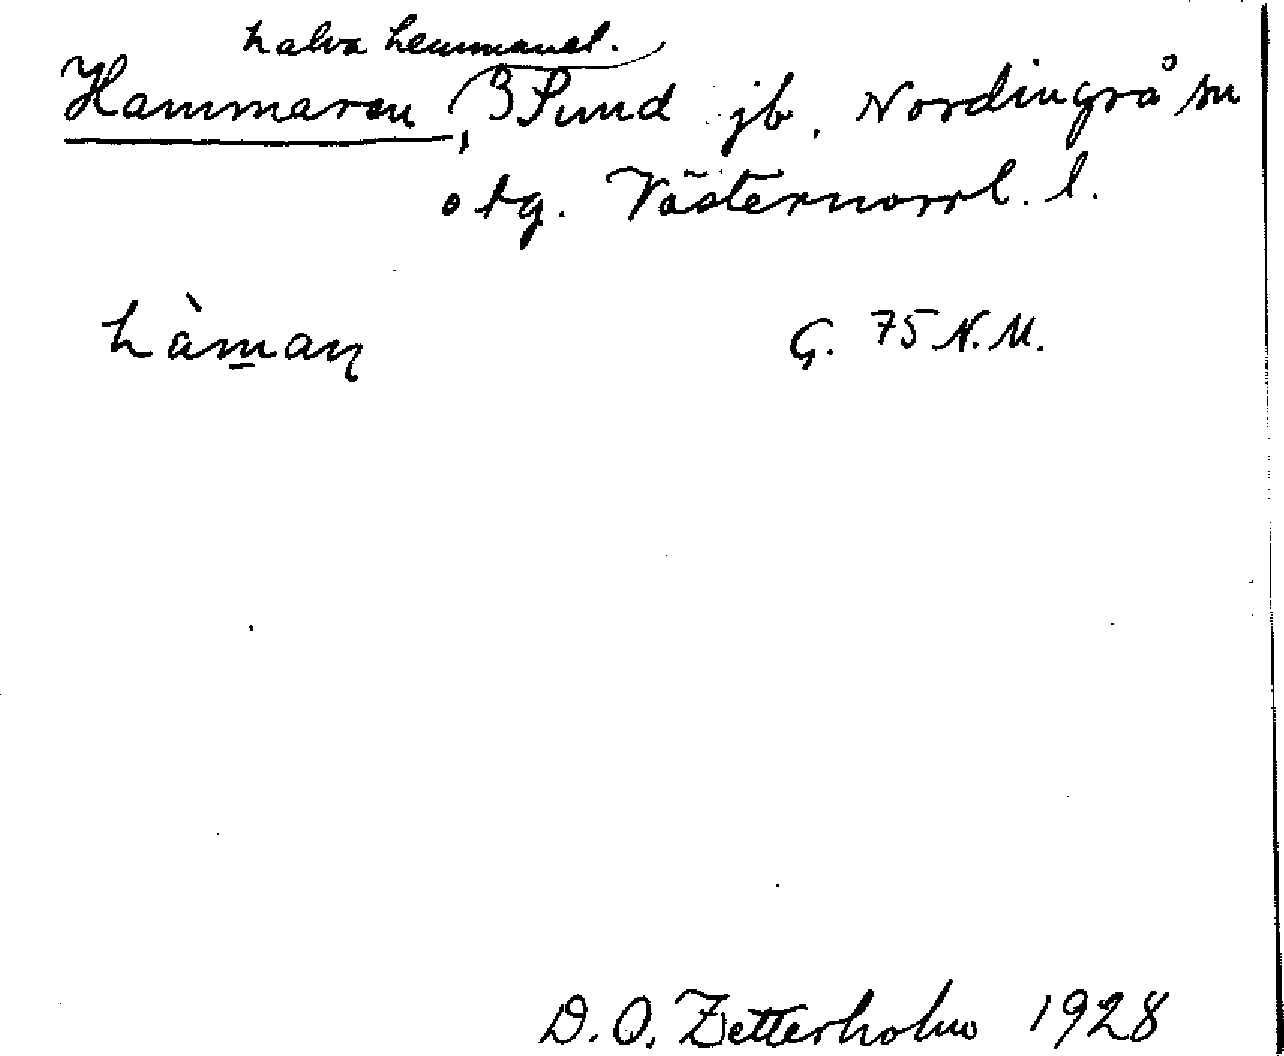 halva hemmanet.
Hammaren, 3 Sund jb. Nordingrå sn
o tg. Västernorrl. l.
hàm̲aɳ G. 75 N.M.
D.O. Zetterholm 1928